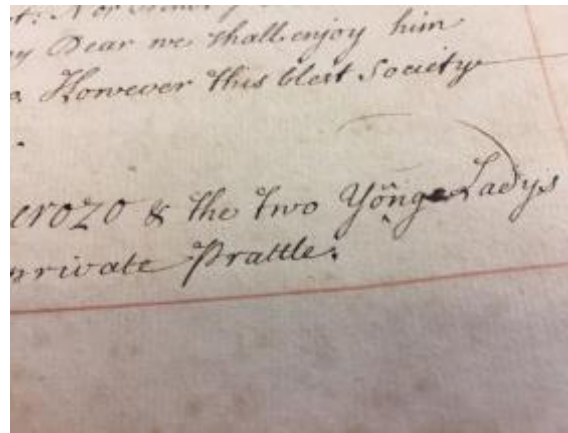 t: Nor
y Dear we shall enjoy him
o. However this blest Society
erozo & the two Yönge Ladys
private Prattle.